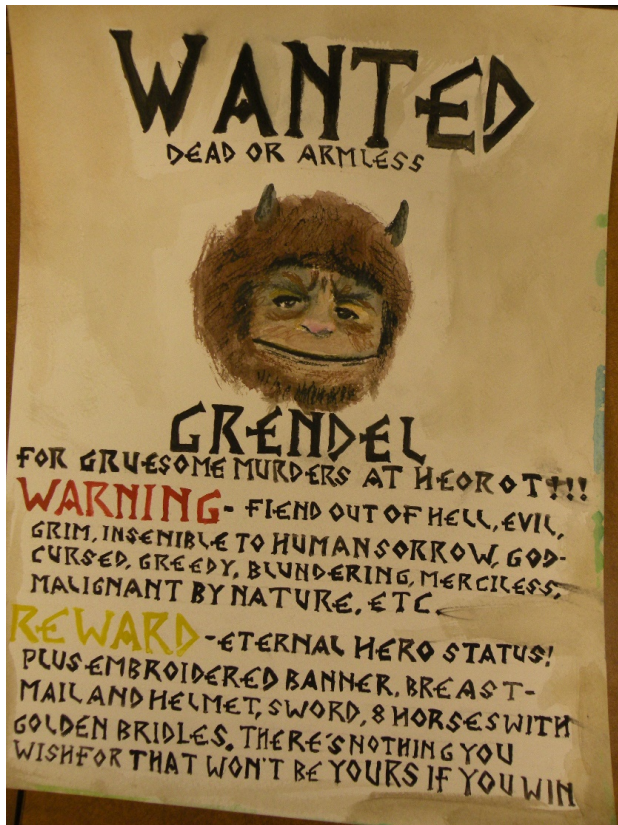 WANTED
DEAD OR ARMLESS
GRENDEL
FOR GRUESOME MURDERS AT HEOROT!!!
WARNING- FIEND OUT OF HELL, EVIL,
GRIM, INSENIBLE TO HUMAN SORROW, GOD-
CURSED, GREEDY, BLUNDERING, MERCILESS,
MALIGNANT BY NATURE, ETC.
REWARD -ETERNAL HERO STATUS!
PLUS EMBROIDERED BANNER, BREAST-
MAIL AND HELMET, SWORD, 8 HORSES WITH
GOLDEN BRIDLES. THERE'S NOTHING YOU
WISH FOR THAT WON'T BE YOURS IF YOU WIN